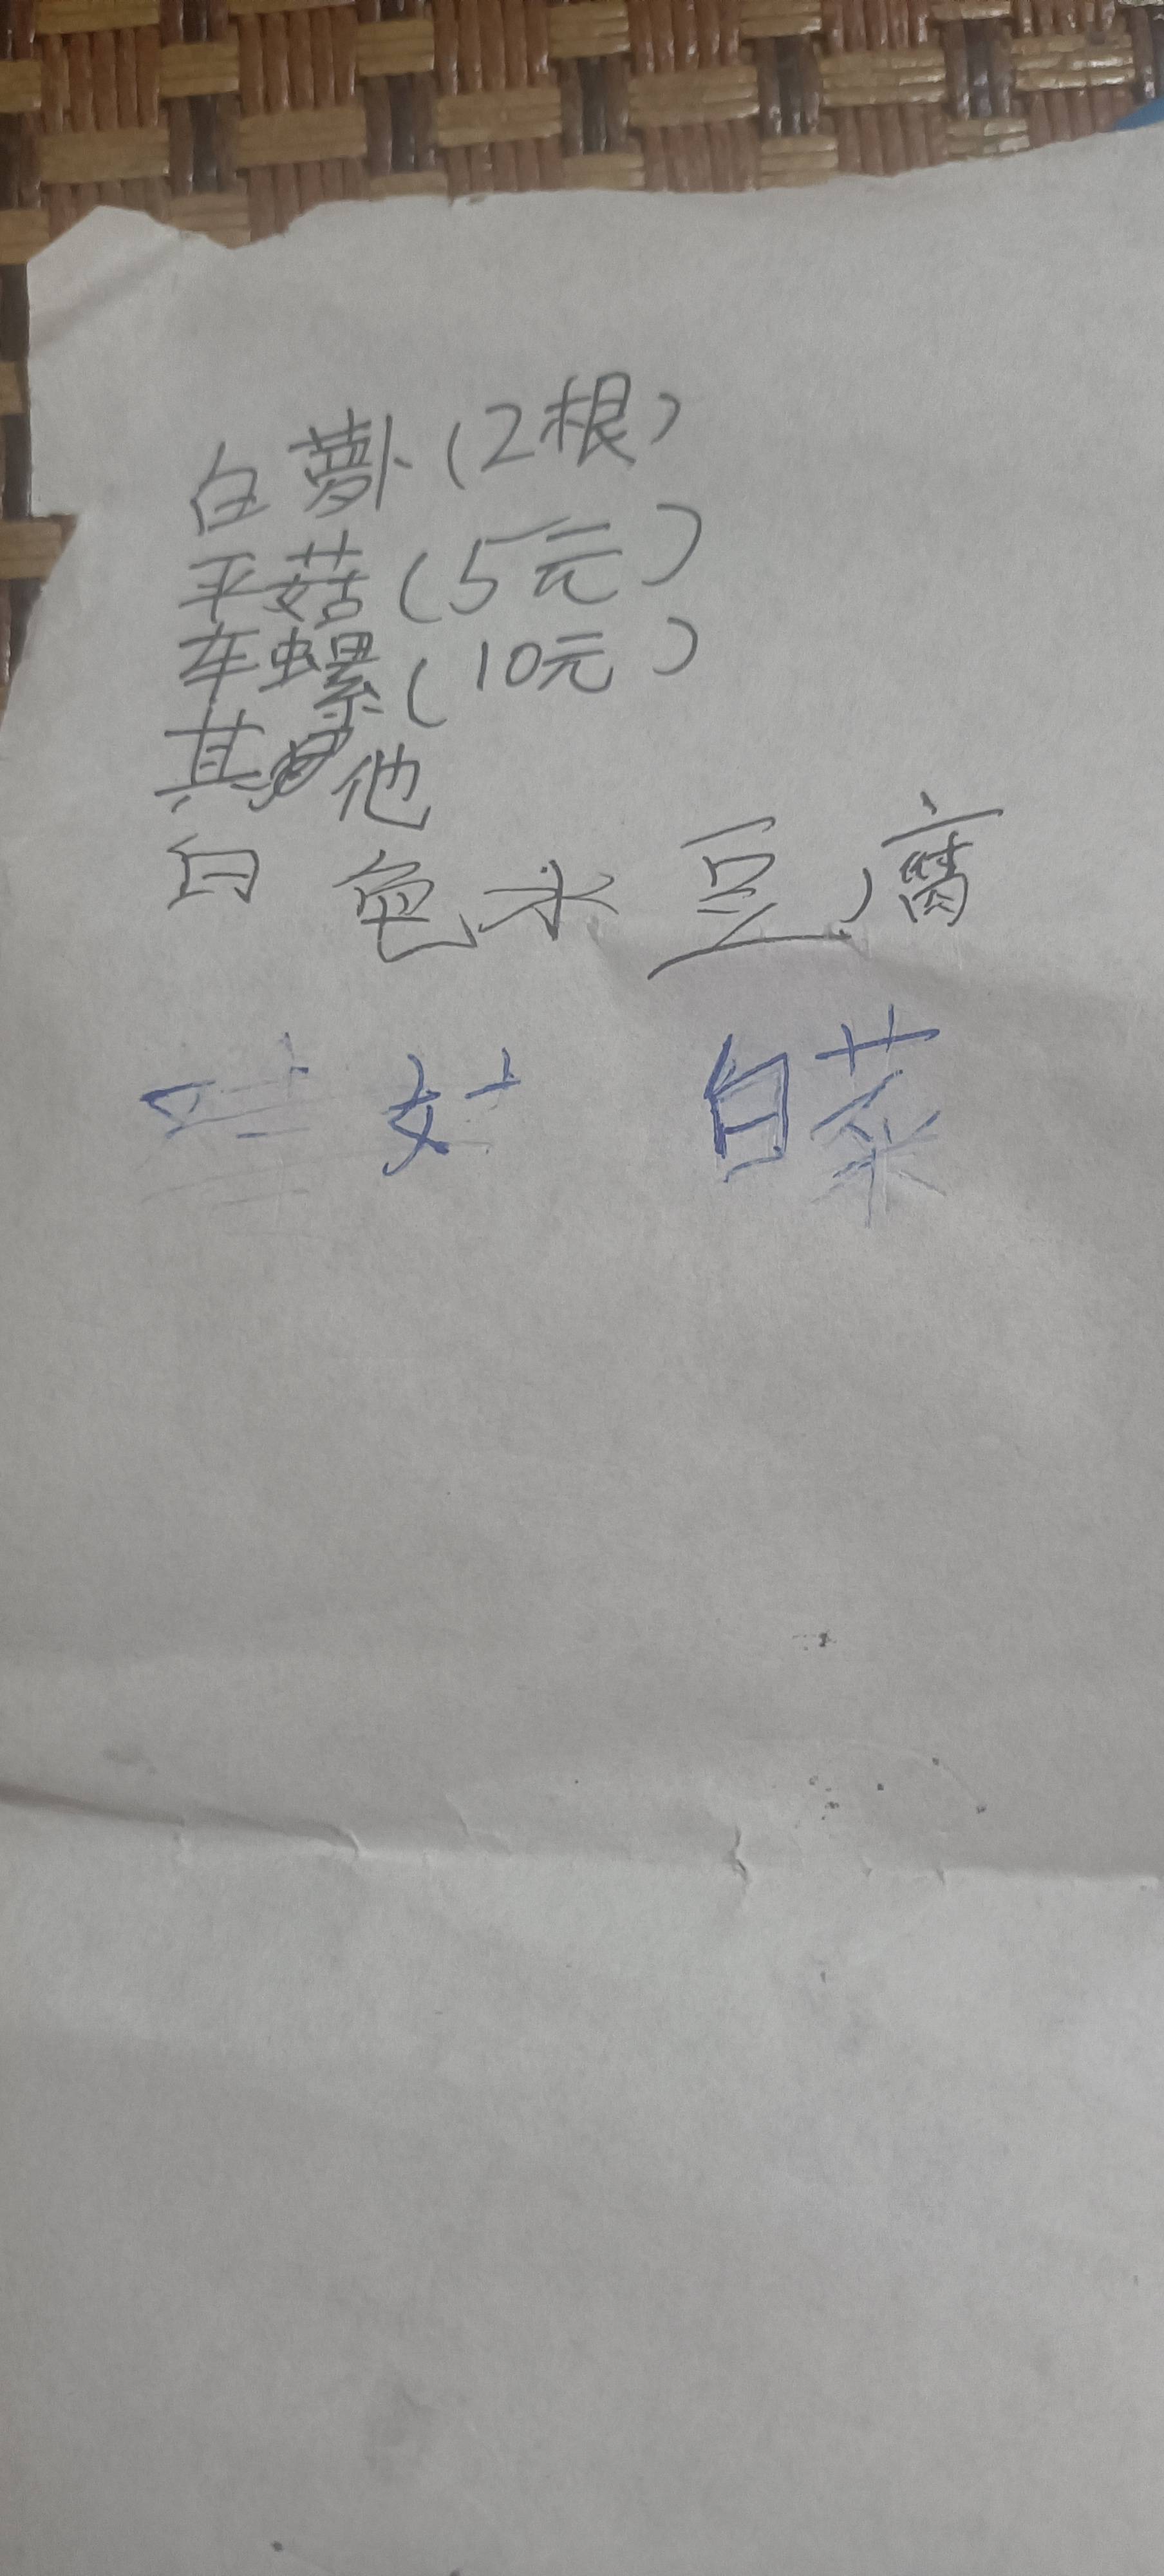 白萝卜(2根)
平菇(5元)
车螺(10元)
其他
白色水豆腐
白菜